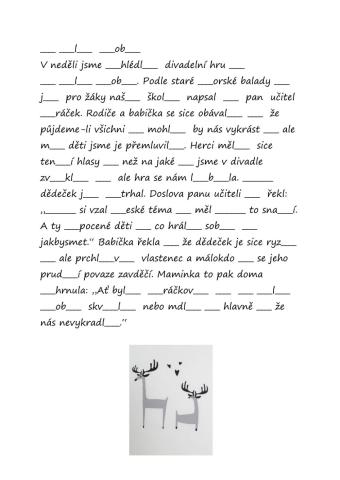 ___ ___l___ ___ob___
V neděli jsme ___hlédl___ divadelní hru ___
___ ___l___ ___ob___. Podle staré ___orské balady ___
j___ pro žáky naš___ škol___ napsal ___ pan učitel
___ráček. Rodiče a babička se sice obával___ ___ že
půjdeme-li všichni ___ mohl___ by nás vykrást ___ ale
m___ děti jsme je přemluvil___. Herci měl___ sice
ten___í hlasy ___ než na jaké ___ jsme v divadle
zv___kl___ ___ ale hra se nám l___b___la. ______
dědeček j___ ___trhal. Doslova panu učiteli ___ řekl:
„______ si vzal ___eské téma ___ měl ______ to sna___í.
A ty ___pocené děti ___ co hrál___ sob___ ___
jakbysmet.“ Babička řekla ___ že dědeček je sice ryz___
___ ale prchl___v___ vlastenec a málokdo ___ se jeho
prud___í povaze zavděčí. Maminka to pak doma
___hrnula: „Ať byl___ ___ráčkov___ ___ ___ ___l___
___ob___ skv___l___ nebo mdl___ ___ hlavně ___ že
nás nevykradl___.“